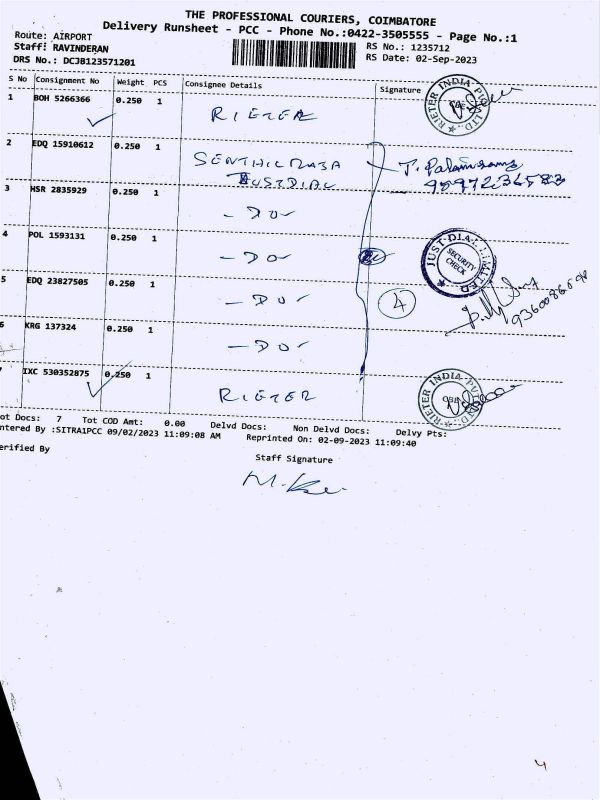 THE PROFESSIONAL COURIERS, COIMBATORE
Delivery Runsheet - PCC - Phone No.:0422-3505555 - Page No.:1
Route: AIRPORT
Staff: RAVINDERAN
RS No.: 1235712
DRS No.: DCJB123571201
RS Date: 02-Sep-2023
S No Consignment No Weight PCS Consignee Details Signature
1 BOH 5266366 0.250 1 RIETER
RIETER INDIA PVT LTD.
2 EDQ 15910612 0.250 1 SENTHIL RAJA
JUSTDIAL
3 HSR 2835929 0.250 1 - DO -
4 POL 1593131 0.250 1 - DO -
JUST DIAL LIMITED
SECURITY
CHECK
5 EDQ 23827505 0.250 1 - DO -
4
6 KRG 137324 0.250 1 - DO -
7 IXC 530352875 0.250 1 RIETER
RIETER INDIA PVT LTD.
ot Docs: 7 Tot COD Amt: 0.00 Delvd Docs: Non Delvd Docs: Delvy Pts:
ntered By :SITRA1PCC 09/02/2023 11:09:08 AM Reprinted On: 02-09-2023 11:09:40
erified By
Staff Signature
4